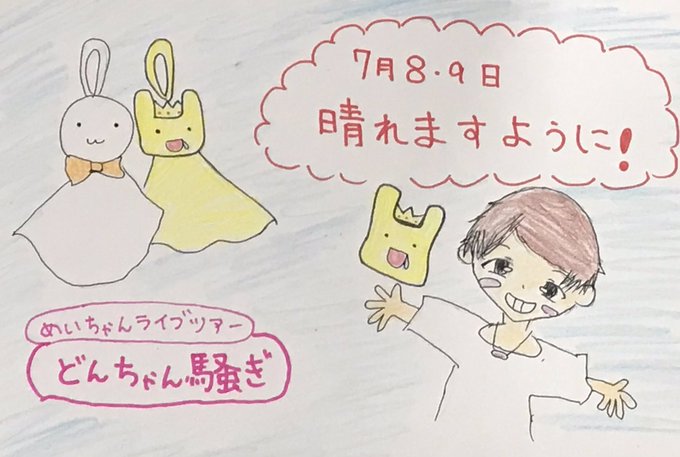 7月8・9日
晴れますように!
めいちゃんライブツアー
どんちゃん騒ぎ